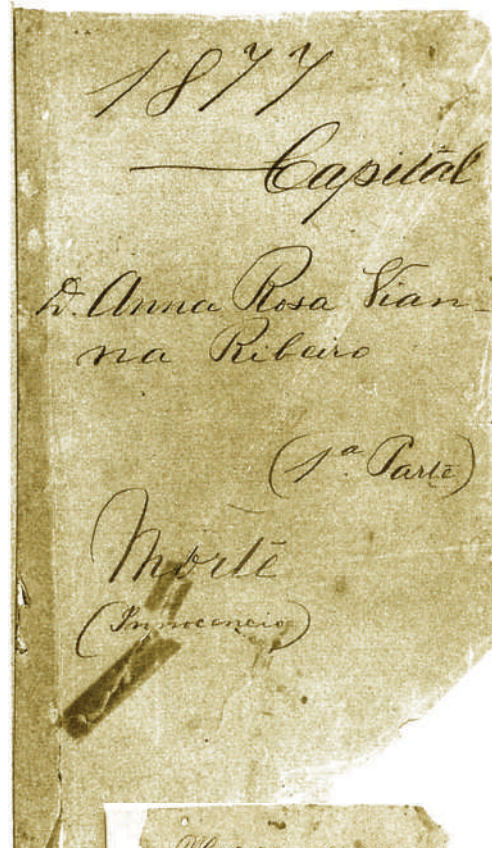 1877
Capital
D. Anna Rosa Vian-
na Ribeiro
(1ª. Parte)
Morte
(Innocencio)